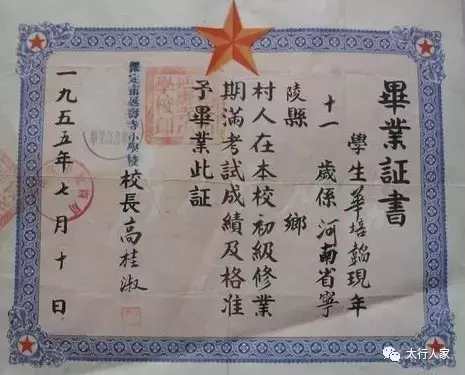 畢業証書
學生華培韜現年
十一歲係河南省寧
陵縣 鄉
村人在本校初級修業
期滿考試成績及格准
予畢業此証
保定市延壽寺小學校
校長高桂淑
一九五五年七月十日
太行人家